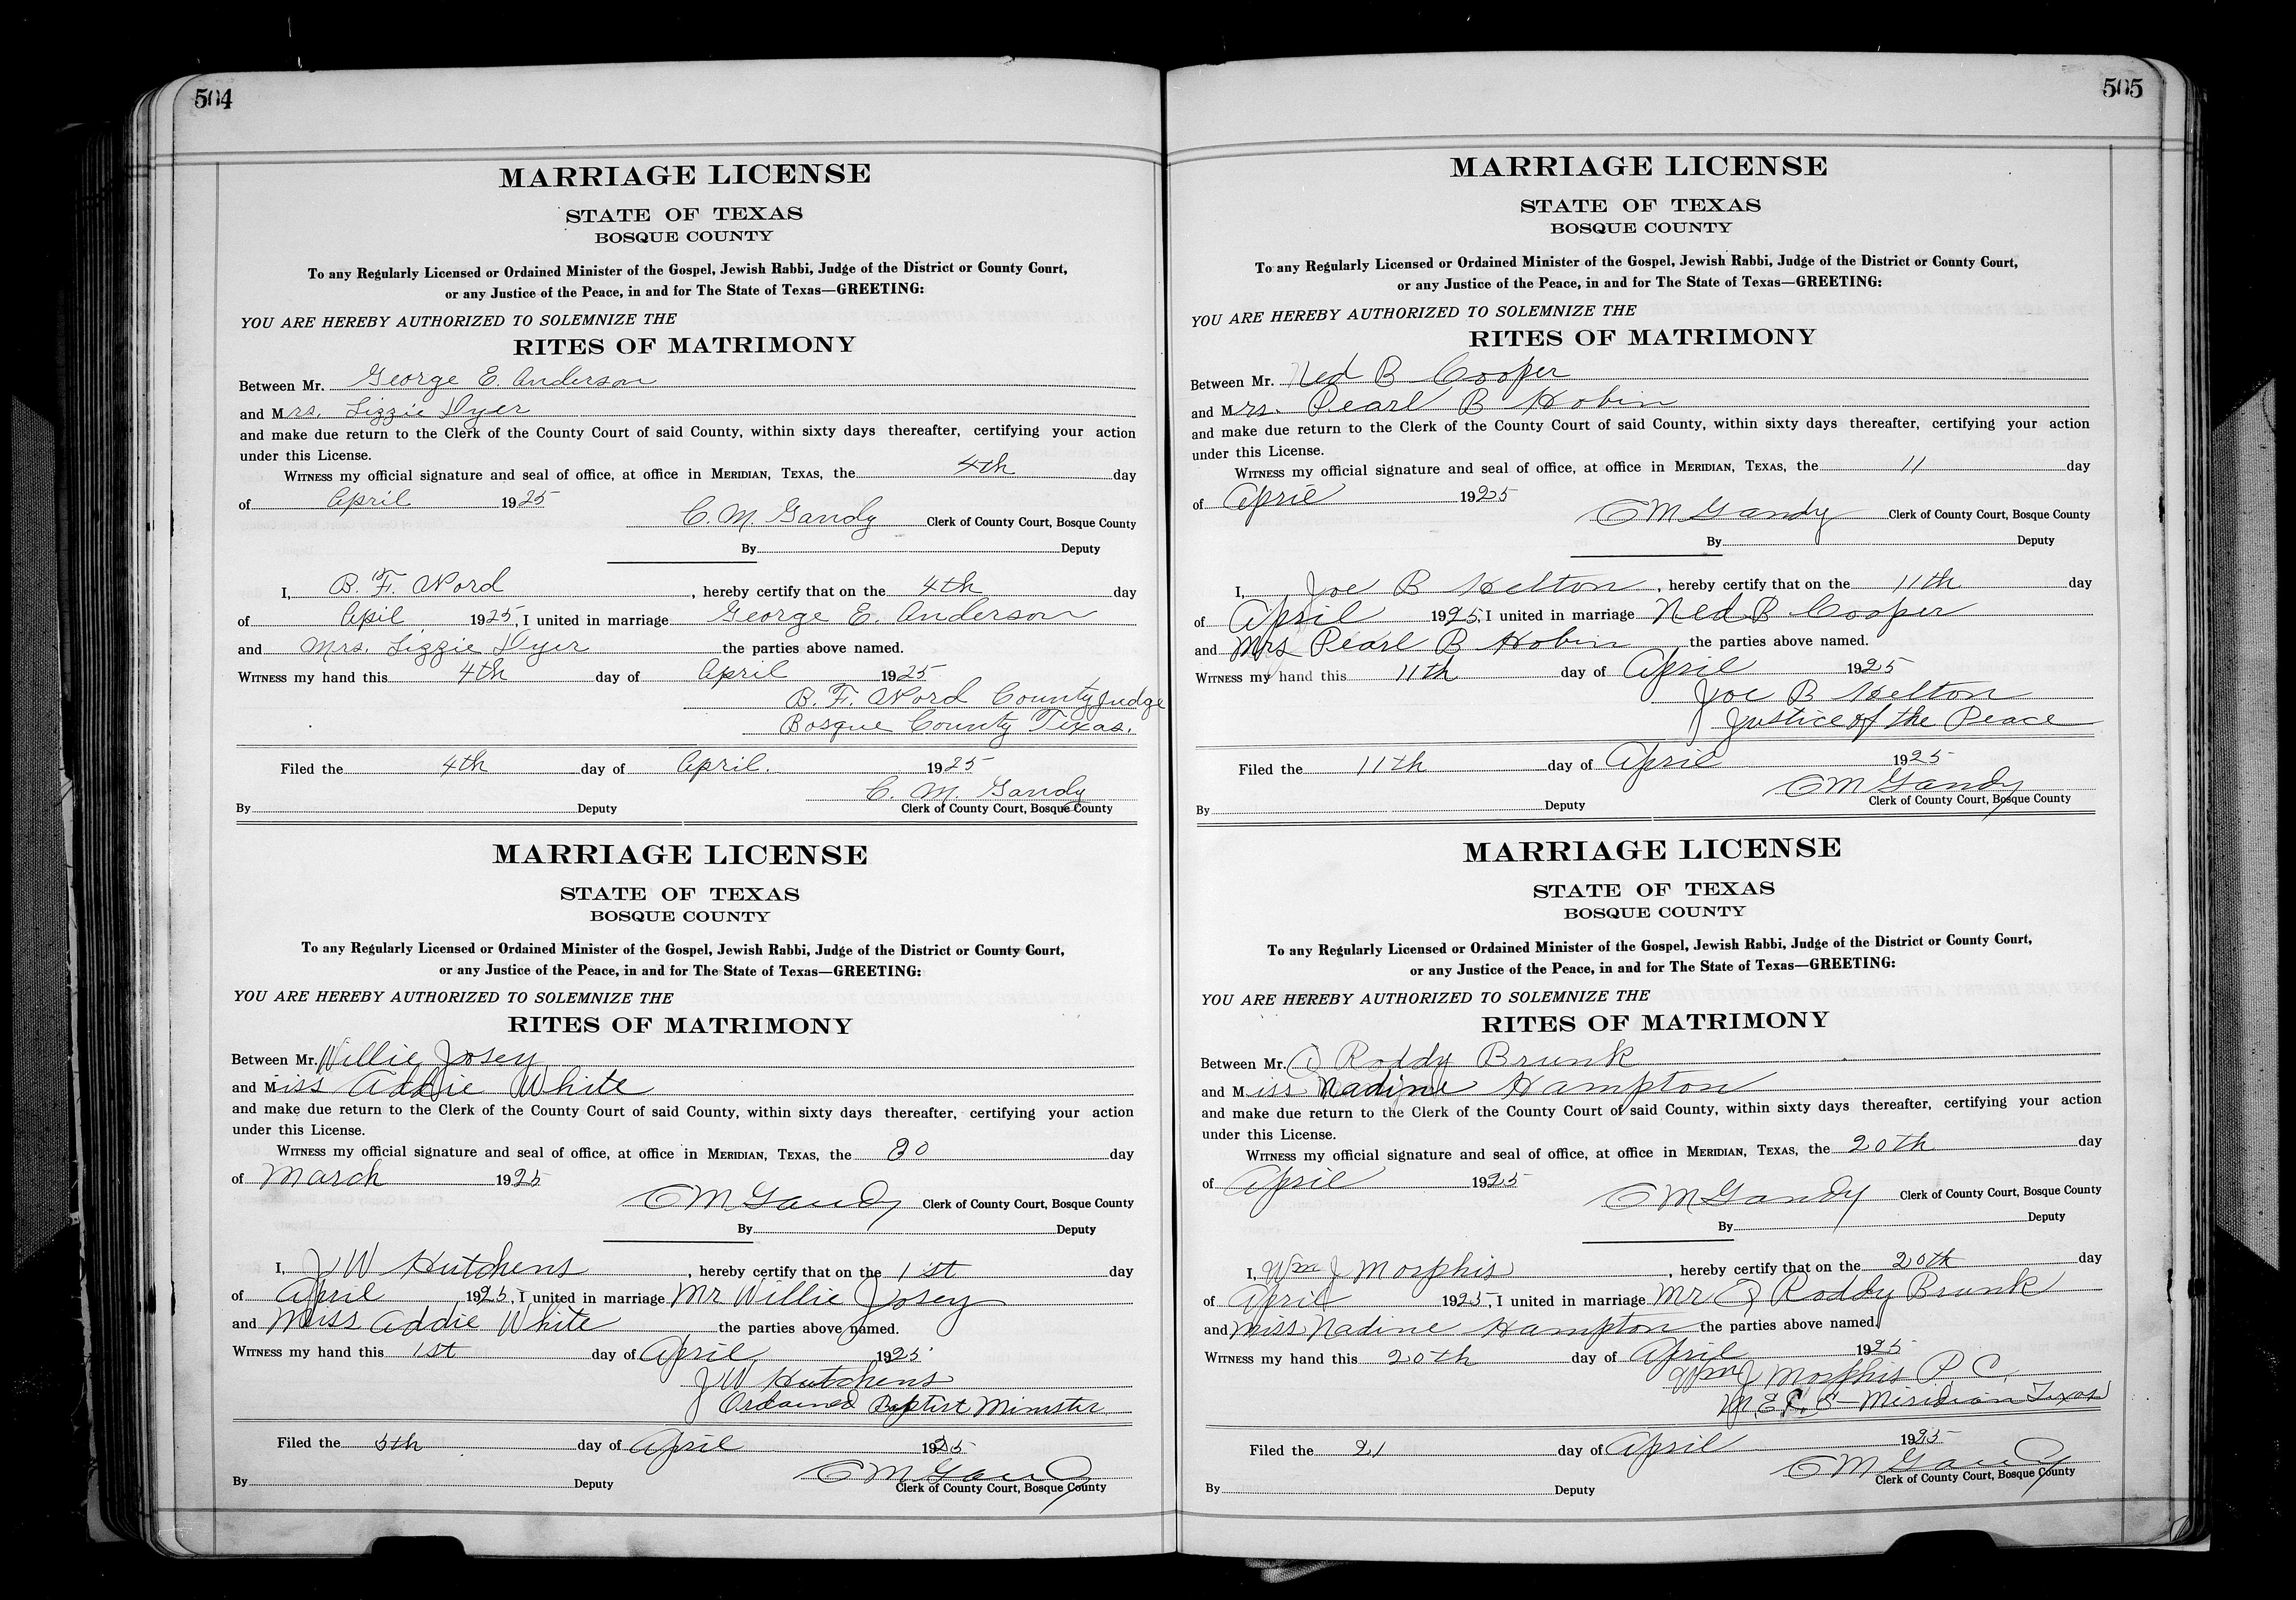 504
MARRIAGE LICENSE
STATE OF TEXAS
BOSQUE COUNTY
To any Regularly Licensed or Ordained Minister of the Gospel, Jewish Rabbi, Judge of the District or County Court,
or any Justice of the Peace, in and for The State of Texas—GREETING:
YOU ARE HEREBY AUTHORIZED TO SOLEMNIZE THE
RITES OF MATRIMONY
Between Mr. George E. Anderson
and Mrs. Lizzie Dyer
and make due return to the Clerk of the County Court of said County, within sixty days thereafter, certifying your action
under this License.
WITNESS my official signature and seal of office, at office in MERIDIAN, TEXAS, the 4th day
of April 1925
C. M. Gandy Clerk of County Court, Bosque County
By Deputy
I, B. F. Word, hereby certify that on the 4th day
of Apil 1925, I united in marriage George E. Anderson
and Mrs. Lizzie Dyer the parties above named.
WITNESS my hand this 4th day of April 1925
B. F. Word County Judge
Bosque County Texas.
Filed the 4th day of April. 1925
C. M. Gandy
By Deputy Clerk of County Court, Bosque County
MARRIAGE LICENSE
STATE OF TEXAS
BOSQUE COUNTY
To any Regularly Licensed or Ordained Minister of the Gospel, Jewish Rabbi, Judge of the District or County Court,
or any Justice of the Peace, in and for The State of Texas—GREETING:
YOU ARE HEREBY AUTHORIZED TO SOLEMNIZE THE
RITES OF MATRIMONY
Between Mr. Willie Josey
and Miss Addie White
and make due return to the Clerk of the County Court of said County, within sixty days thereafter, certifying your action
under this License.
WITNESS my official signature and seal of office, at office in MERIDIAN, TEXAS, the day
of March 1925
C M Gandy Clerk of County Court, Bosque County
By Deputy
I, J W Hutchens, hereby certify that on the 1st day
of April 1925, I united in marriage Mr Willie Josey
and Miss Addie White the parties above named.
WITNESS my hand this 1st day of April 1925
J W Hutchens
Ordained Baptist Minster
Filed the 5th day of April 1925
C M Gandy
By Deputy Clerk of County Court, Bosque County
505
MARRIAGE LICENSE
STATE OF TEXAS
BOSQUE COUNTY
To any Regularly Licensed or Ordained Minister of the Gospel, Jewish Rabbi, Judge of the District or County Court,
or any Justice of the Peace, in and for The State of Texas—GREETING:
YOU ARE HEREBY AUTHORIZED TO SOLEMNIZE THE
RITES OF MATRIMONY
Between Mr. Ned B Cooper
and Mrs. Pearl B Hobin
and make due return to the Clerk of the County Court of said County, within sixty days thereafter, certifying your action
under this License.
WITNESS my official signature and seal of office, at office in MERIDIAN, TEXAS, the 11 day
of April 1925
C M Gandy Clerk of County Court, Bosque County
By Deputy
I, Joe B Helton, hereby certify that on the 11th day
of April 1925, I united in marriage Ned B Cooper
and Mrs Pearl B Hobin the parties above named.
WITNESS my hand this 11th day of April 1925
Joe B Helton
Justice of the Peace
Filed the 11th day of April 1925
C M Gandy
By Deputy Clerk of County Court, Bosque County
MARRIAGE LICENSE
STATE OF TEXAS
BOSQUE COUNTY
To any Regularly Licensed or Ordained Minister of the Gospel, Jewish Rabbi, Judge of the District or County Court,
or any Justice of the Peace, in and for The State of Texas—GREETING:
YOU ARE HEREBY AUTHORIZED TO SOLEMNIZE THE
RITES OF MATRIMONY
Between Mr. Roddy Brunk
and Miss Nadine Hampton
and make due return to the Clerk of the County Court of said County, within sixty days thereafter, certifying your action
under this License.
WITNESS my official signature and seal of office, at office in MERIDIAN, TEXAS, the 20th day
of April 1925
C M Gandy Clerk of County Court, Bosque County
By Deputy
I, Wm J Morphis, hereby certify that on the 20th day
of April 1925, I united in marriage Mr Roddy Brunk
and Miss Nadine Hampton the parties above named.
WITNESS my hand this 20th day of April 1925
Wm J Morphis P. C.
M E C S— Meridian Texas
Filed the 21 day of April 1925
C M Gandy
By Deputy Clerk of County Court, Bosque County